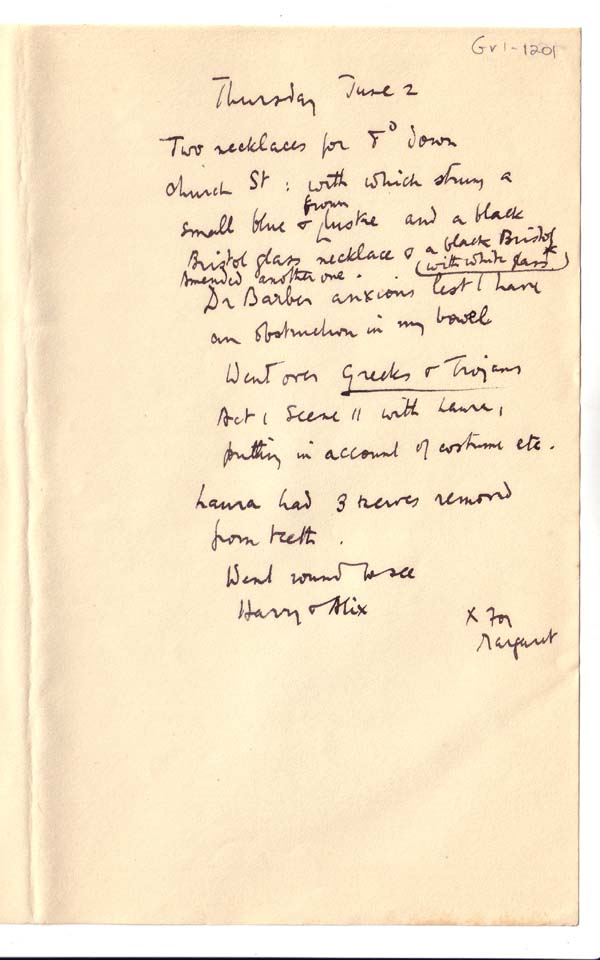 Gv1-1201
Thursday June 2
Two necklaces for 8D down
Church St : with which strung a
small blue & brown lustre and a black
Bristol glass necklace & a black Bristol
(with white glass x)
Amended another one.
Dr Barber anxious lest I have
an obstruction in my bowel
Went over Greeks & Trojans
Act 1 Scene 11 with Laura,
putting in account of costume etc.
Laura had 3 nerves removed
from teeth.
Went round to see
Harry & Alix
x For
Margaret